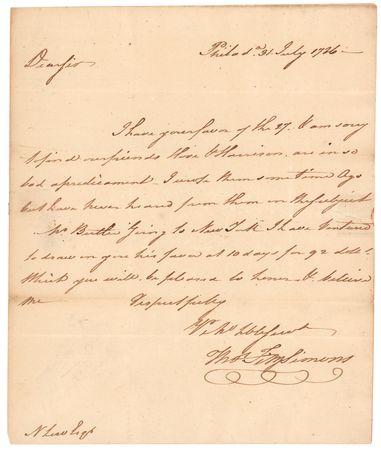 Philad.ᵃ 31 July 1786
Dear Sir
I have your favor of the 27. I am sorry
to find our friends & Harrison are in so
bad a predicament I wrote them some time Ago
but have never heard from them on the subject
Mr Butler Going to New I have Ventured
to draw on you his favor at 10 days for 92 dolls
Which you will be pleased to honor & believe
me Respectfully
Yr
Thos FitzSimons
N Low Esqr